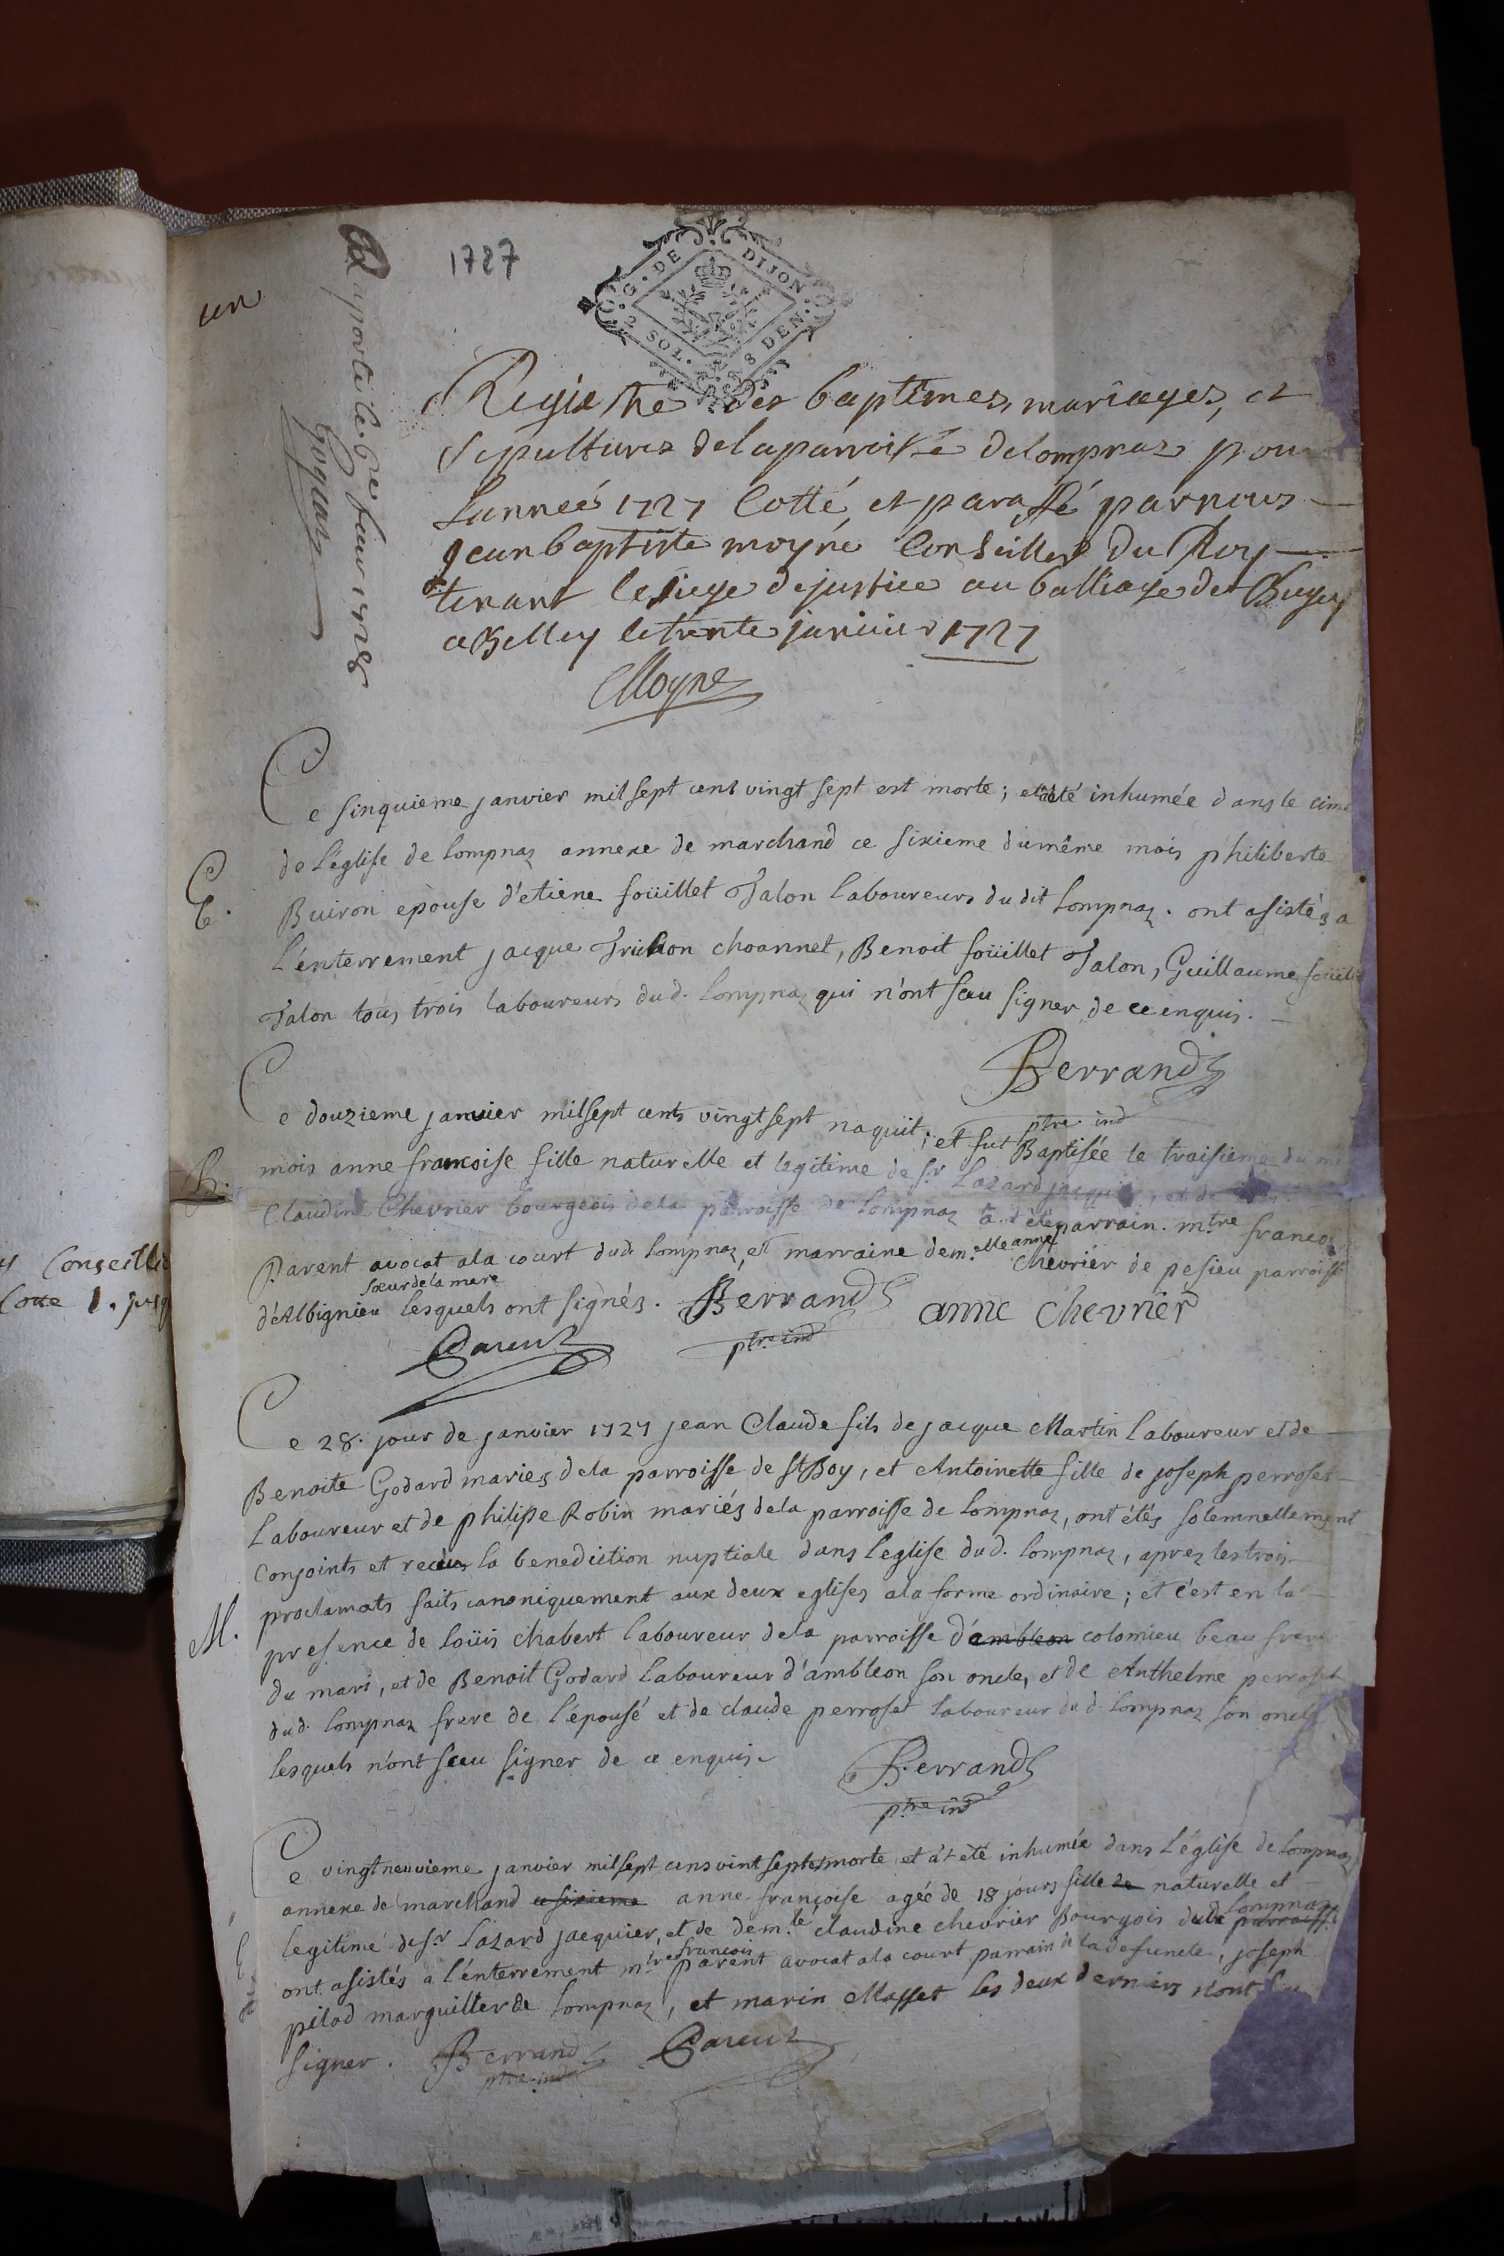 1727
G. DE DIJON
2 SOL. 8 DEN.
un
aporte le 9e feur 1728
Registre des baptemes, mariages, et
sepultures de la parroisse de lompnas pour
Lanneé 1727 Cotté, et paraffé par nous
Jean baptiste moyne Conseiller du Roy
tenant le siege de justice au balliage de Bugey
a Belley le trente janvier 1727
Moyne
Ce sinquieme janvier mil sept cent vingt sept est morte; et a été inhumée dans le cim
de l'église de lompnaz annexe de marchand ce sixieme du même mois philiberte
E. Buiron epouse d'etiene foüillet Jalon laboureurs du dit lompnaz. ont asistés a
l'énterrement jacque Trichon choannet, Benoit foüillet Jalon, Guillaume foüillet
Jalon tous trois laboureurs dud. lompnaz qui n'ont sceu signer de ce enquis.
Berrand
ptre ind
Ce douzieme janvier mil sept cents vingt sept naquit; et fut Baptisée le traisieme du m
B. mois anne francoise fille naturelle et legitime de sr Lazard jacquier, et de
Claudine Chevrier bourgeois de la parroisse de lompnaz a été parrain. mtre francois
Parent avocat a la court dud. lompnaz, et marraine demelle anne Chevriér de pesieu parroisse
sœur de la mere
d'Albignieu lesquels ont signés. Berrand anne Chevriér
Parent ptre ind
Ce 28. jour de janvier 1727 jean Claude fils de jacque Martin laboureur et de
Benoite Godard mariez de la parroisse de St Boy, et Antoinette fille de joseph perroset
laboureur et de philippe Robin mariés de la parroisse de lompnaz, ont étés solemnellement
conjoints et receus la benediction nuptiale dans l'eglise dud. lompnaz, aprez les trois
proclamats faits canoniquement aux deux eglises a la forme ordinaire; et c'est en la
M. presence de loüis chabert laboureur de la parroisse d'ambleon colomieu beau frere
du mari, et de Benoit Godard laboureur d'ambleon son oncle, et de Anthelme perroset
dud. lompnaz frere de l'épousé et de claude perroset laboureur dud. lompnaz son oncle
lesquels n'ont sceu signer de ce enquis.
Berrand
ptre ind
Ce vingt neuvieme janvier mil sept cens vint sept est morte et at eté inhumée dans l'église de lompnaz
annexe de marchand ce sixieme anne françoise agée de 18 jours fille de naturelle et
legitime de sr Lazard jacquier, et de demlle claudine chevrier Bourgois de la parroisse lompnaz
ont asistés a l'énterrement mtre francois parent avocat a la court parrain de la defuncte, joseph
pilod marguiller de lompnaz, et marin Masset les deux derniers n'ont sceu
signer. Berrand Parent
ptre ind
y Conseille
Cotte 1. jusq